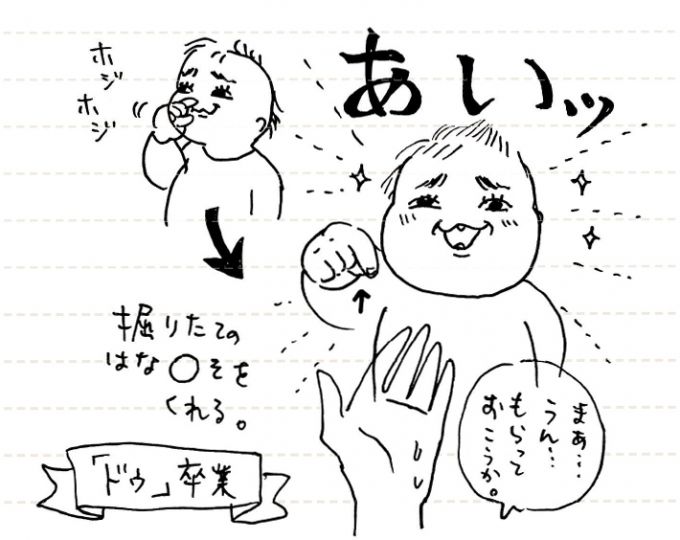 ホジ
ホジ
あいッ
掘りたての
はな〇そを
くれる。
まぁ…
うん…
もらって
おこうか。
「ドゥ」卒業